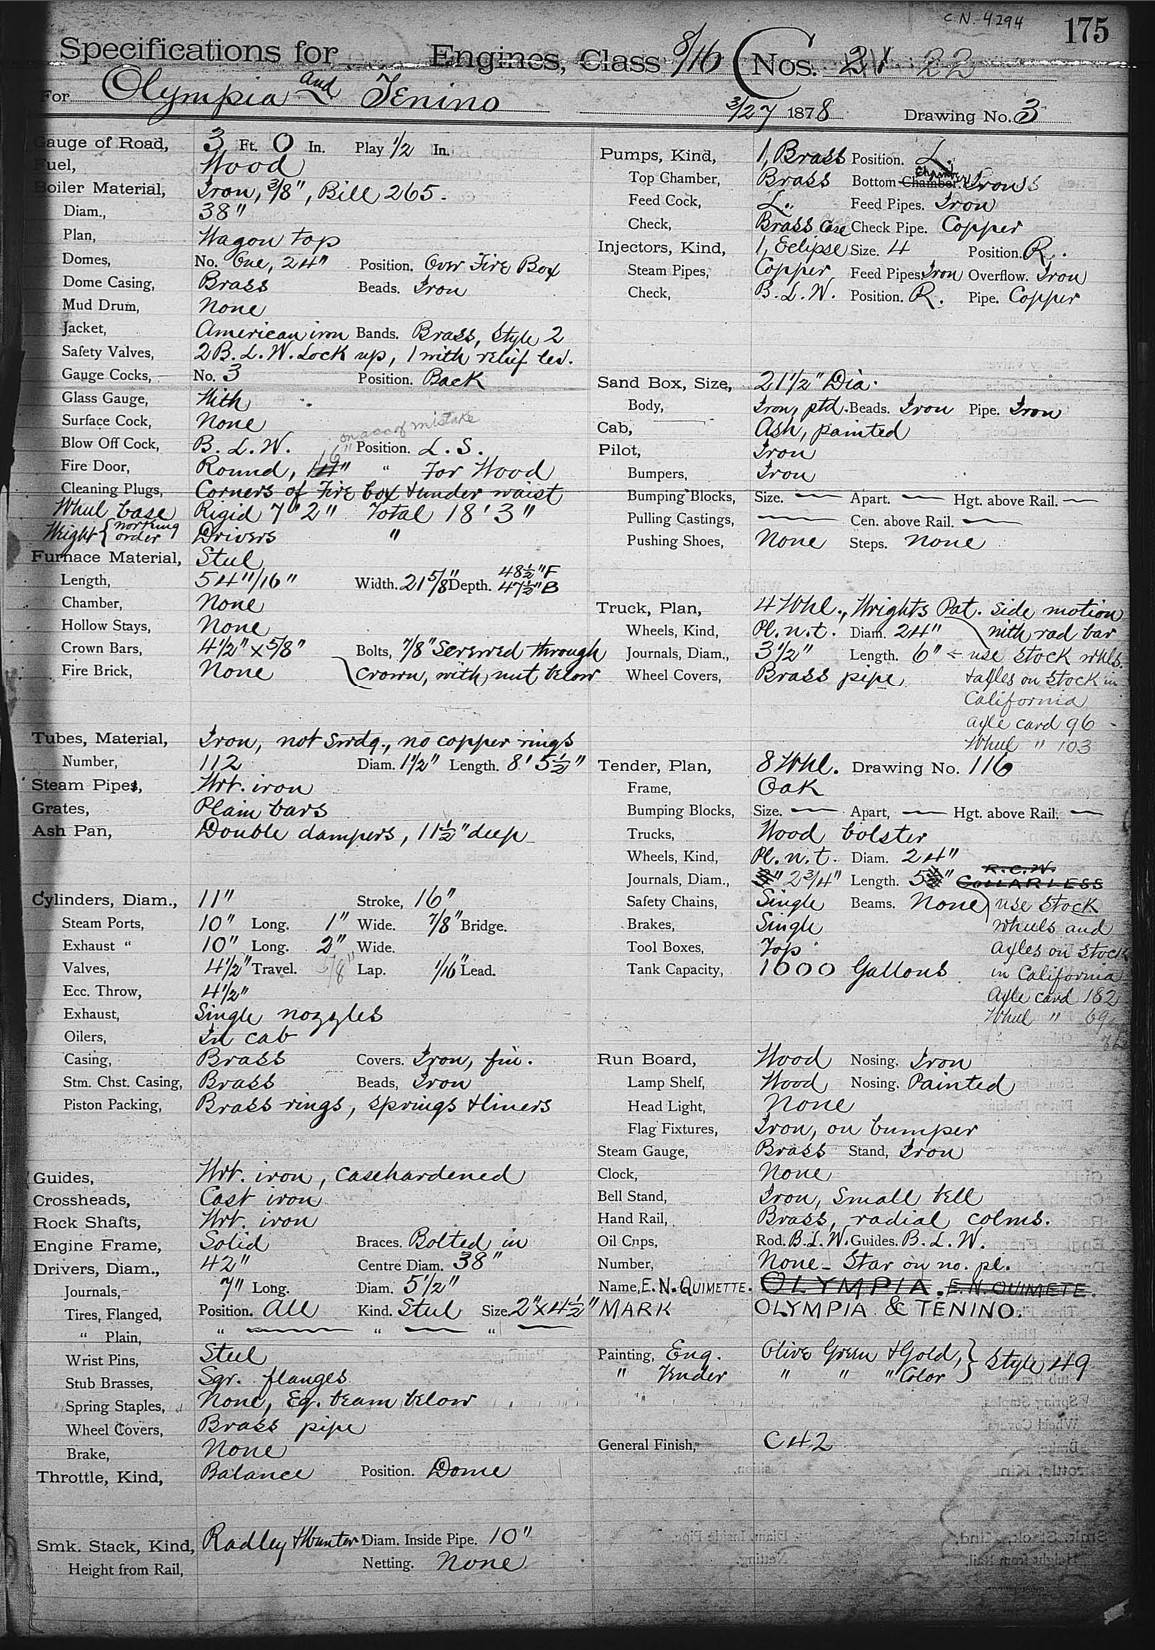 C.N. 4294
175
Specifications for Engines, Class 8/16 C Nos. 21 22
For Olympia and Tenino 3/27 1878 Drawing No. 3
Gauge of Road, 3 Ft. 0 In. Play 1/2 In.
Fuel, Wood
Boiler Material, Iron, 3/8", Bill 265.
Diam., 38"
Plan, Wagon top
Domes, No. One, 24" Position. Over Fire Box
Dome Casing, Brass Beads. Iron
Mud Drum, None
Jacket, American iron Bands. Brass, Style 2
Safety Valves, 2 B.L.W. Lock up, 1 with relief lev.
Gauge Cocks, No. 3 Position. Back
Glass Gauge, With
Surface Cock, None
on acc of mistake
Blow Off Cock, B.L.W. Position. L.S.
16"
Fire Door, Round, 14" " For Wood
Cleaning Plugs, Corners of Fire box & under waist
Wheel base Rigid 7' 2" Total 18' 3"
Weight { working order Drivers "
Furnace Material, Steel
Length, 54 11/16" Width. 21 5/8" Depth. 48 1/2" F 47 1/2" B
Chamber, None
Hollow Stays, None
Crown Bars, 4 1/2" x 5/8" Bolts, 7/8" Screwed through
Fire Brick, None crown, with nut below
Tubes, Material, Iron, not Swdg., no copper rings
Number, 112 Diam. 1 1/2" Length. 8' 5 1/2"
Steam Pipes, Wrt. iron
Grates, Plain bars
Ash Pan, Double dampers, 11 1/2" deep
Cylinders, Diam., 11" Stroke, 16"
Steam Ports, 10" Long. 1" Wide. 7/8" Bridge.
Exhaust " 10" Long. 2" Wide.
Valves, 4 1/2" Travel. 3/8" Lap. 1/16" Lead.
Ecc. Throw, 4 1/2"
Exhaust, Single nozzles
Oilers, In cab
Casing, Brass Covers. Iron, fin.
Stm. Chst. Casing, Brass Beads, Iron
Piston Packing, Brass rings, springs & liners
Guides, Wrt. iron, casehardened
Crossheads, Cast iron
Rock Shafts, Wrt. iron
Engine Frame, Solid Braces. Bolted in
Drivers, Diam., 42" Centre Diam. 38"
Journals, 7" Long. Diam. 5 1/2"
Tires, Flanged, Position. All Kind. Steel Size. 2" x 4 1/2"
" Plain, " — " — " —
Wrist Pins, Steel
Stub Brasses, Sqr. flanges
Spring Staples, None, Eq. beam below
Wheel Covers, Brass pipe
Brake, None
Throttle, Kind, Balance Position. Dome
Smk. Stack, Kind, Radley & Hunter Diam. Inside Pipe. 10"
Height from Rail, Netting. None
Pumps, Kind, 1, Brass Position. L.
Chamber
Top Chamber, Brass Bottom Chamber, Iron
Feed Cock, L. Feed Pipes. Iron
Check, Brass Case Check Pipe. Copper
Injectors, Kind, 1, Eclipse Size. 4 Position. R.
Steam Pipes, Copper Feed Pipes. Iron Overflow. Iron
Check, B.L.W. Position. R. Pipe. Copper
Sand Box, Size, 21 1/2" Dia.
Body, Iron, ptd. Beads. Iron Pipe. Iron
Cab, Ash, painted
Pilot, Iron
Bumpers, Iron
Bumping Blocks, Size. — Apart. — Hgt. above Rail. —
Pulling Castings, — Cen. above Rail. —
Pushing Shoes, None Steps. None
Truck, Plan, 4 Whl., Wrights Pat. side motion
Wheels, Kind, Pl. n. t. Diam. 24" with rad bar
Journals, Diam., 3 1/2" Length. 6" use stock whls.
Wheel Covers, Brass pipe & axles on stock in
California
axle card 96
Wheel " 103
Tender, Plan, 8 Whl. Drawing No. 116
Frame, Oak
Bumping Blocks, Size. — Apart, — Hgt. above Rail. —
Trucks, Wood bolster
Wheels, Kind, Pl. n. t. Diam. 24"
R.C.W.
Journals, Diam., 2 3/4" Length. 5" COLLARLESS
Safety Chains, Single Beams. None use stock
Brakes, Single wheels and
Tool Boxes, Top axles on stock
Tank Capacity, 1000 Gallons in California
Axle card 182
Wheel " 69
Run Board, Wood Nosing. Iron
Lamp Shelf, Wood Nosing. Painted
Head Light, None
Flag Fixtures, Iron, on bumper
Steam Gauge, Brass Stand, Iron
Clock, None
Bell Stand, Iron, Small bell
Hand Rail, Brass, radial colms.
Oil Cups, Rod. B.L.W. Guides. B.L.W.
Number, None - Star on no. pl.
Name, E.N. QUIMETTE. OLYMPIA. E.N. QUIMETE.
MARK OLYMPIA & TENINO.
Painting, Eng. Olive Green & Gold, } Style 49
" Tender " " " Color
General Finish, C 42